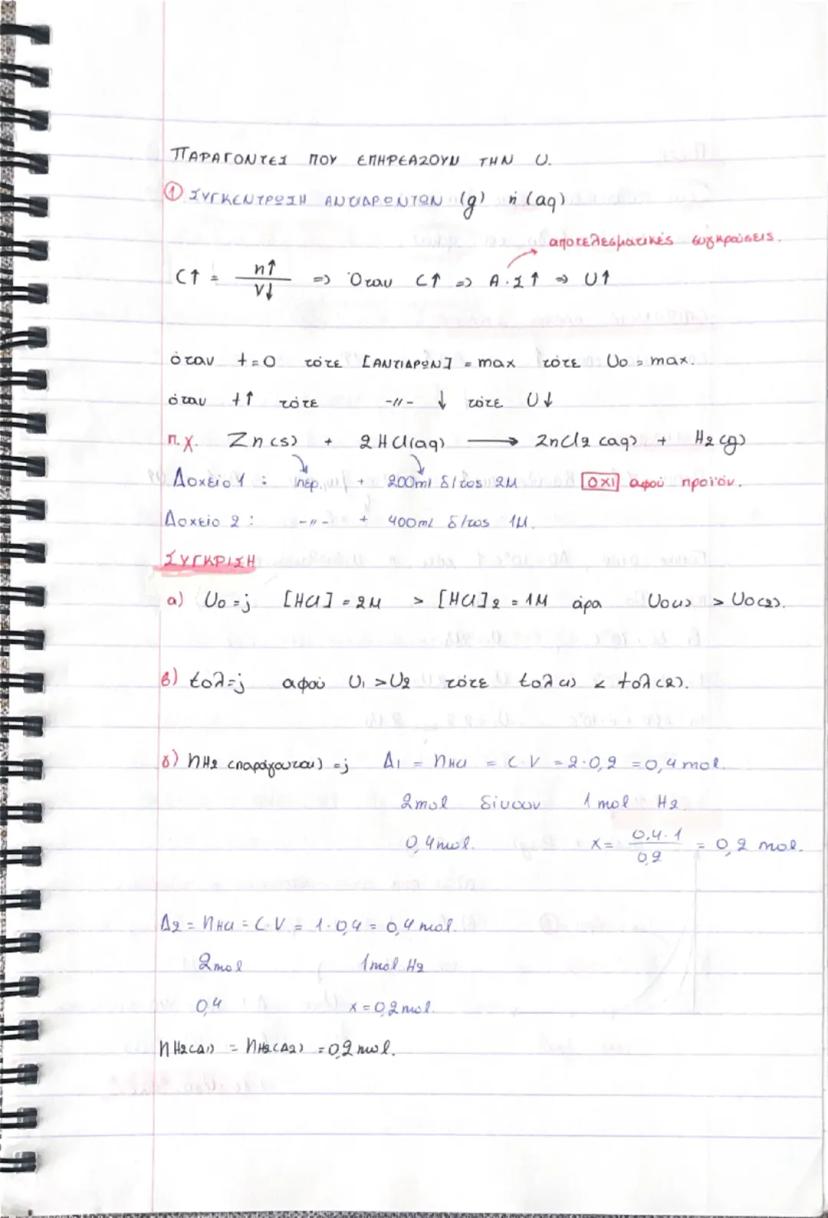 ΠΑΡΑΓΟΝΤΕΣ ΠΟΥ ΕΠΗΡΕΑΖΟΥΝ ΤΗΝ U.
① ΣΥΓΚΕΝΤΡΩΣΗ ΑΝΤΙΔΡΩΝΤΩΝ (g) ή (aq)
αποτελεσματικές συγκρούσεις.
C↑ = n↑/V↓ => Όταν C↑ => A.Σ↑ => U↑
όταν t=0 τότε [ΑΝΤΙΔΡΩΝ] = max τότε U0 = max.
όταν t↑ τότε -//- ↓ τότε U↓
π.χ. Zn(s) + 2HCl(aq) ⟶ ZnCl2(aq) + H2(g)
Δοχείο 1 : περ. + 200ml δ/τος 2M ΟΧΙ αφού προϊόν.
Δοχείο 2 : -//- + 400ml δ/τος 1M.
ΣΥΓΚΡΙΣΗ
α) U0 =; [HCl] = 2M > [HCl]2 = 1M άρα U0(1) > U0(2).
β) tολ=; αφού U1 > U2 τότε tολ(1) < tολ(2).
γ) nH2 (παράγονται) =; Δ1 = nHCl = C·V = 2·0,2 = 0,4 mol.
2mol δίνουν 1 mol H2
0,4mol. x = 0,4·1/0,2 = 0,2 mol.
Δ2 = nHCl = C·V = 1·0,4 = 0,4 mol.
2mol 1mol H2
0,4 x = 0,2mol.
nH2(Δ1) = nH2(Δ2) = 0,2 mol.